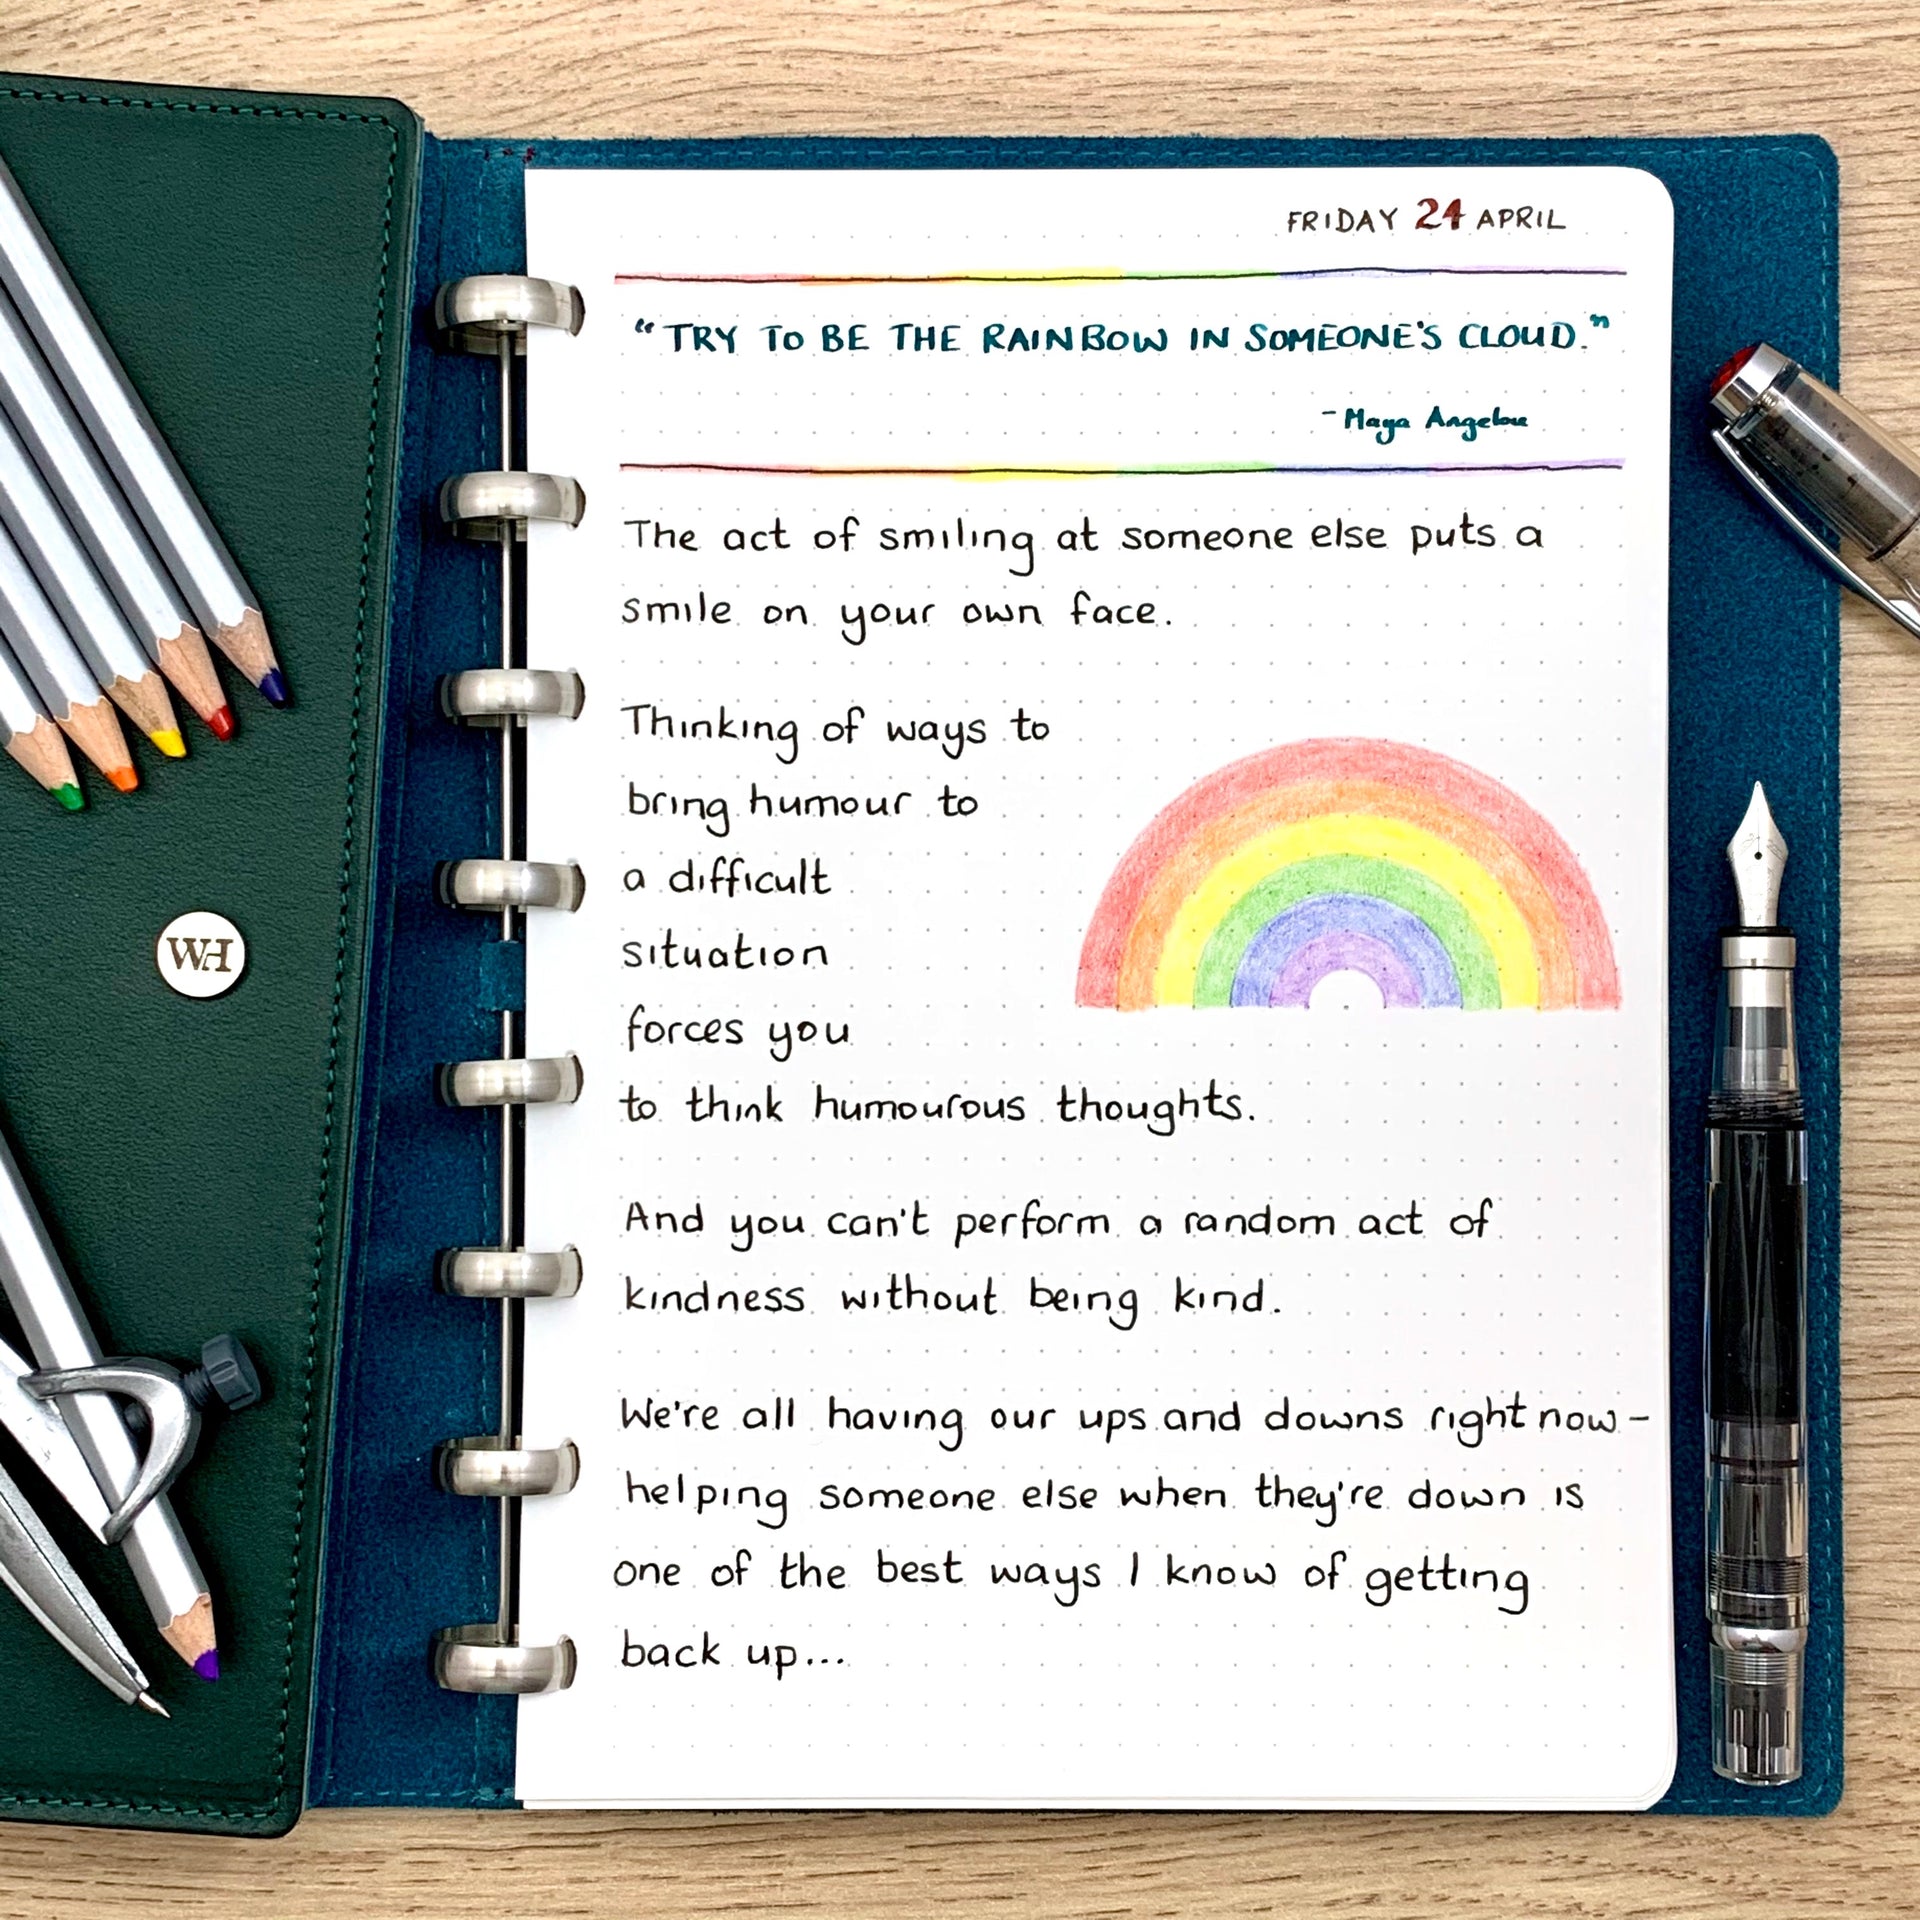 FRIDAY 24 APRIL
"TRY TO BE THE RAINBOW IN SOMEONE'S CLOUD."
- Maya Angelou
The act of smiling at someone else puts a
smile on your own face.
Thinking of ways to
bring humour to
a difficult
situation
forces you
to think humourous thoughts.
And you can't perform a random act of
kindness without being kind.
We're all having our ups and downs right now -
helping someone else when they're down is
one of the best ways I know of getting
back up...
WH